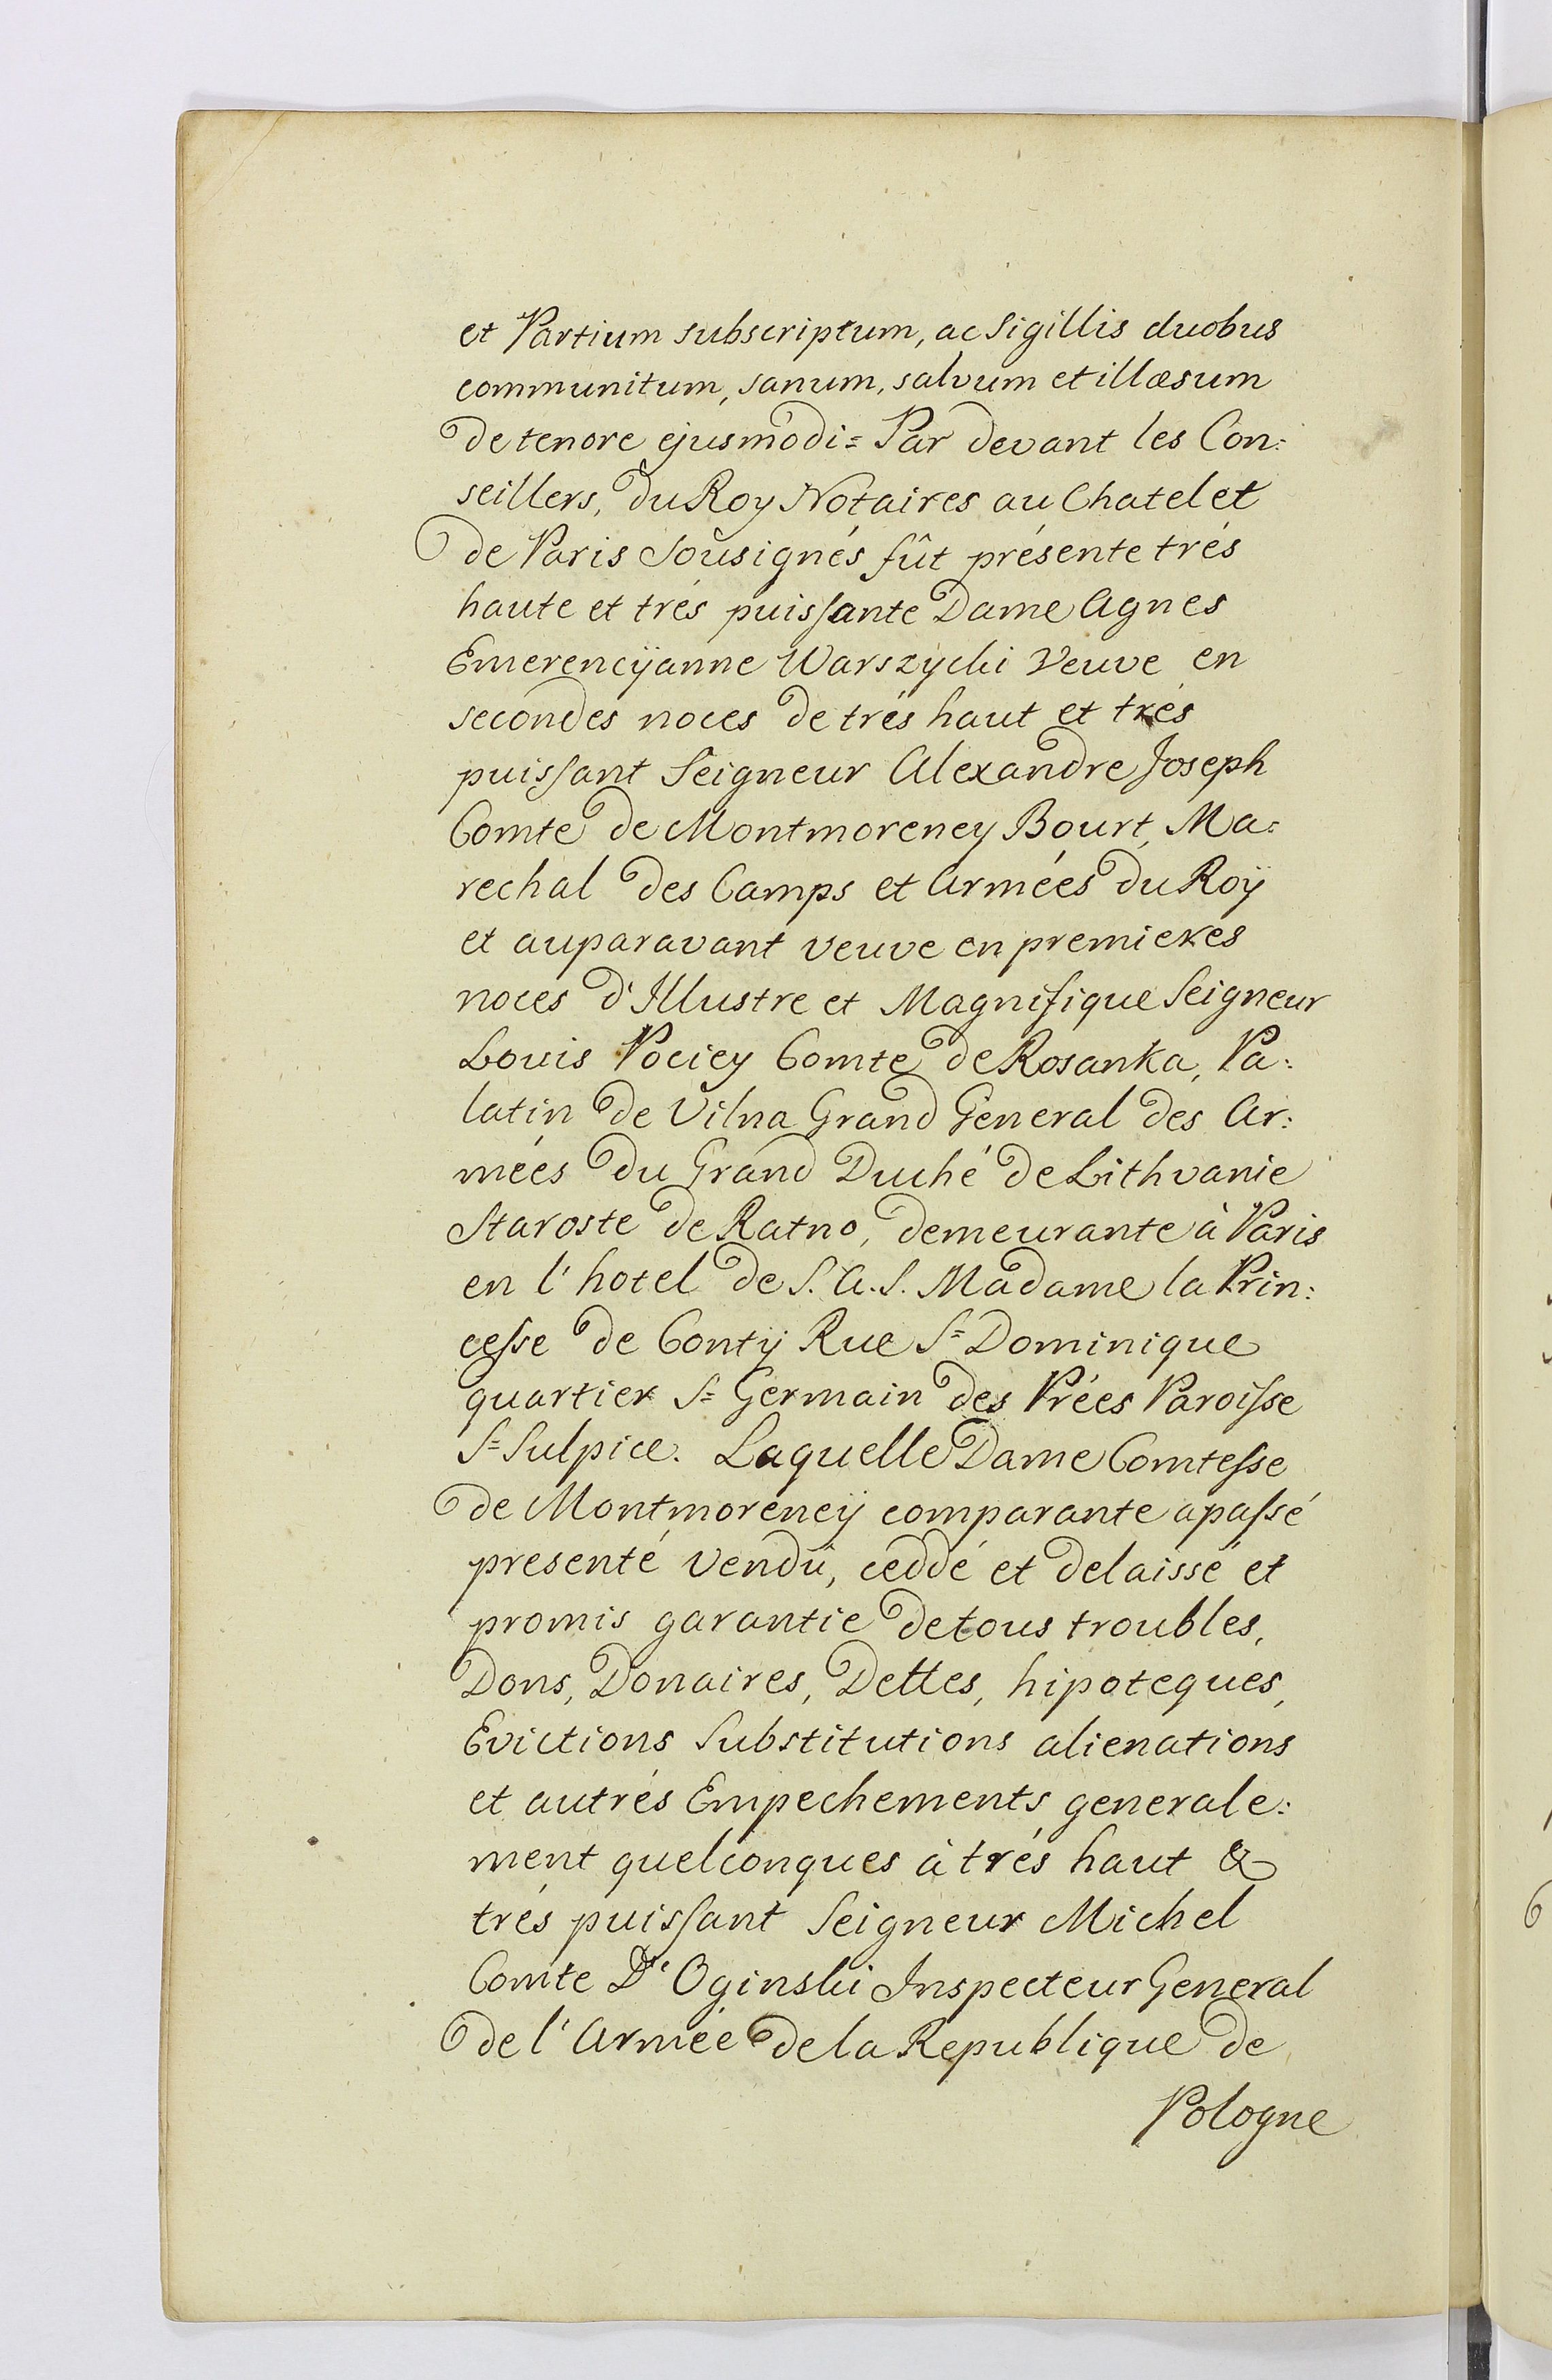 et Partium subscriptum, ac Sigillis duobus
communitum, sanum, salvum et illæsum
de tenore ejusmodi = Par devant les Con:
seillers, du Roy Notaires au Chatelet
de Paris Sousignés fût présente trés
haute et trés puissante Dame Agnes
Emerencÿanne Warszycki Veuve en
secondes noces de trés haut et trés
puissant Seigneur Alexandre Joseph
Comte de Montmorency Bourt, Ma:
rechal des Camps et Armées du Roÿ
et auparavant veuve en premieres
noces d'Illustre et Magnifique Seigneur
Louis Pociey Comte de Rosanka, Pa:
latin de Vilna Grand General des Ar:
mées du Grand Duché de Lithvanie
Staroste de Ratno, demeurante à Paris
en l'hotel de S. A. S. Madame la Prin:
cesse de Contÿ Rue S= Dominique
quartier S= Germain des Prées Paroisse
S= Sulpice. Laquelle Dame Comtesse
de Montmorencÿ comparante apassé
presenté vendu, ceddé et delaissé et
promis garantie de tous troubles,
Dons, Donaires, Dettes, hipoteques,
Evictions Substitutions alienations
et autrés Empechements generale:
ment quelconques à trés haut &
trés puissant Seigneur Michel
Comte D'Oginski Inspecteur General
de l'Armée de la Republique de
Pologne